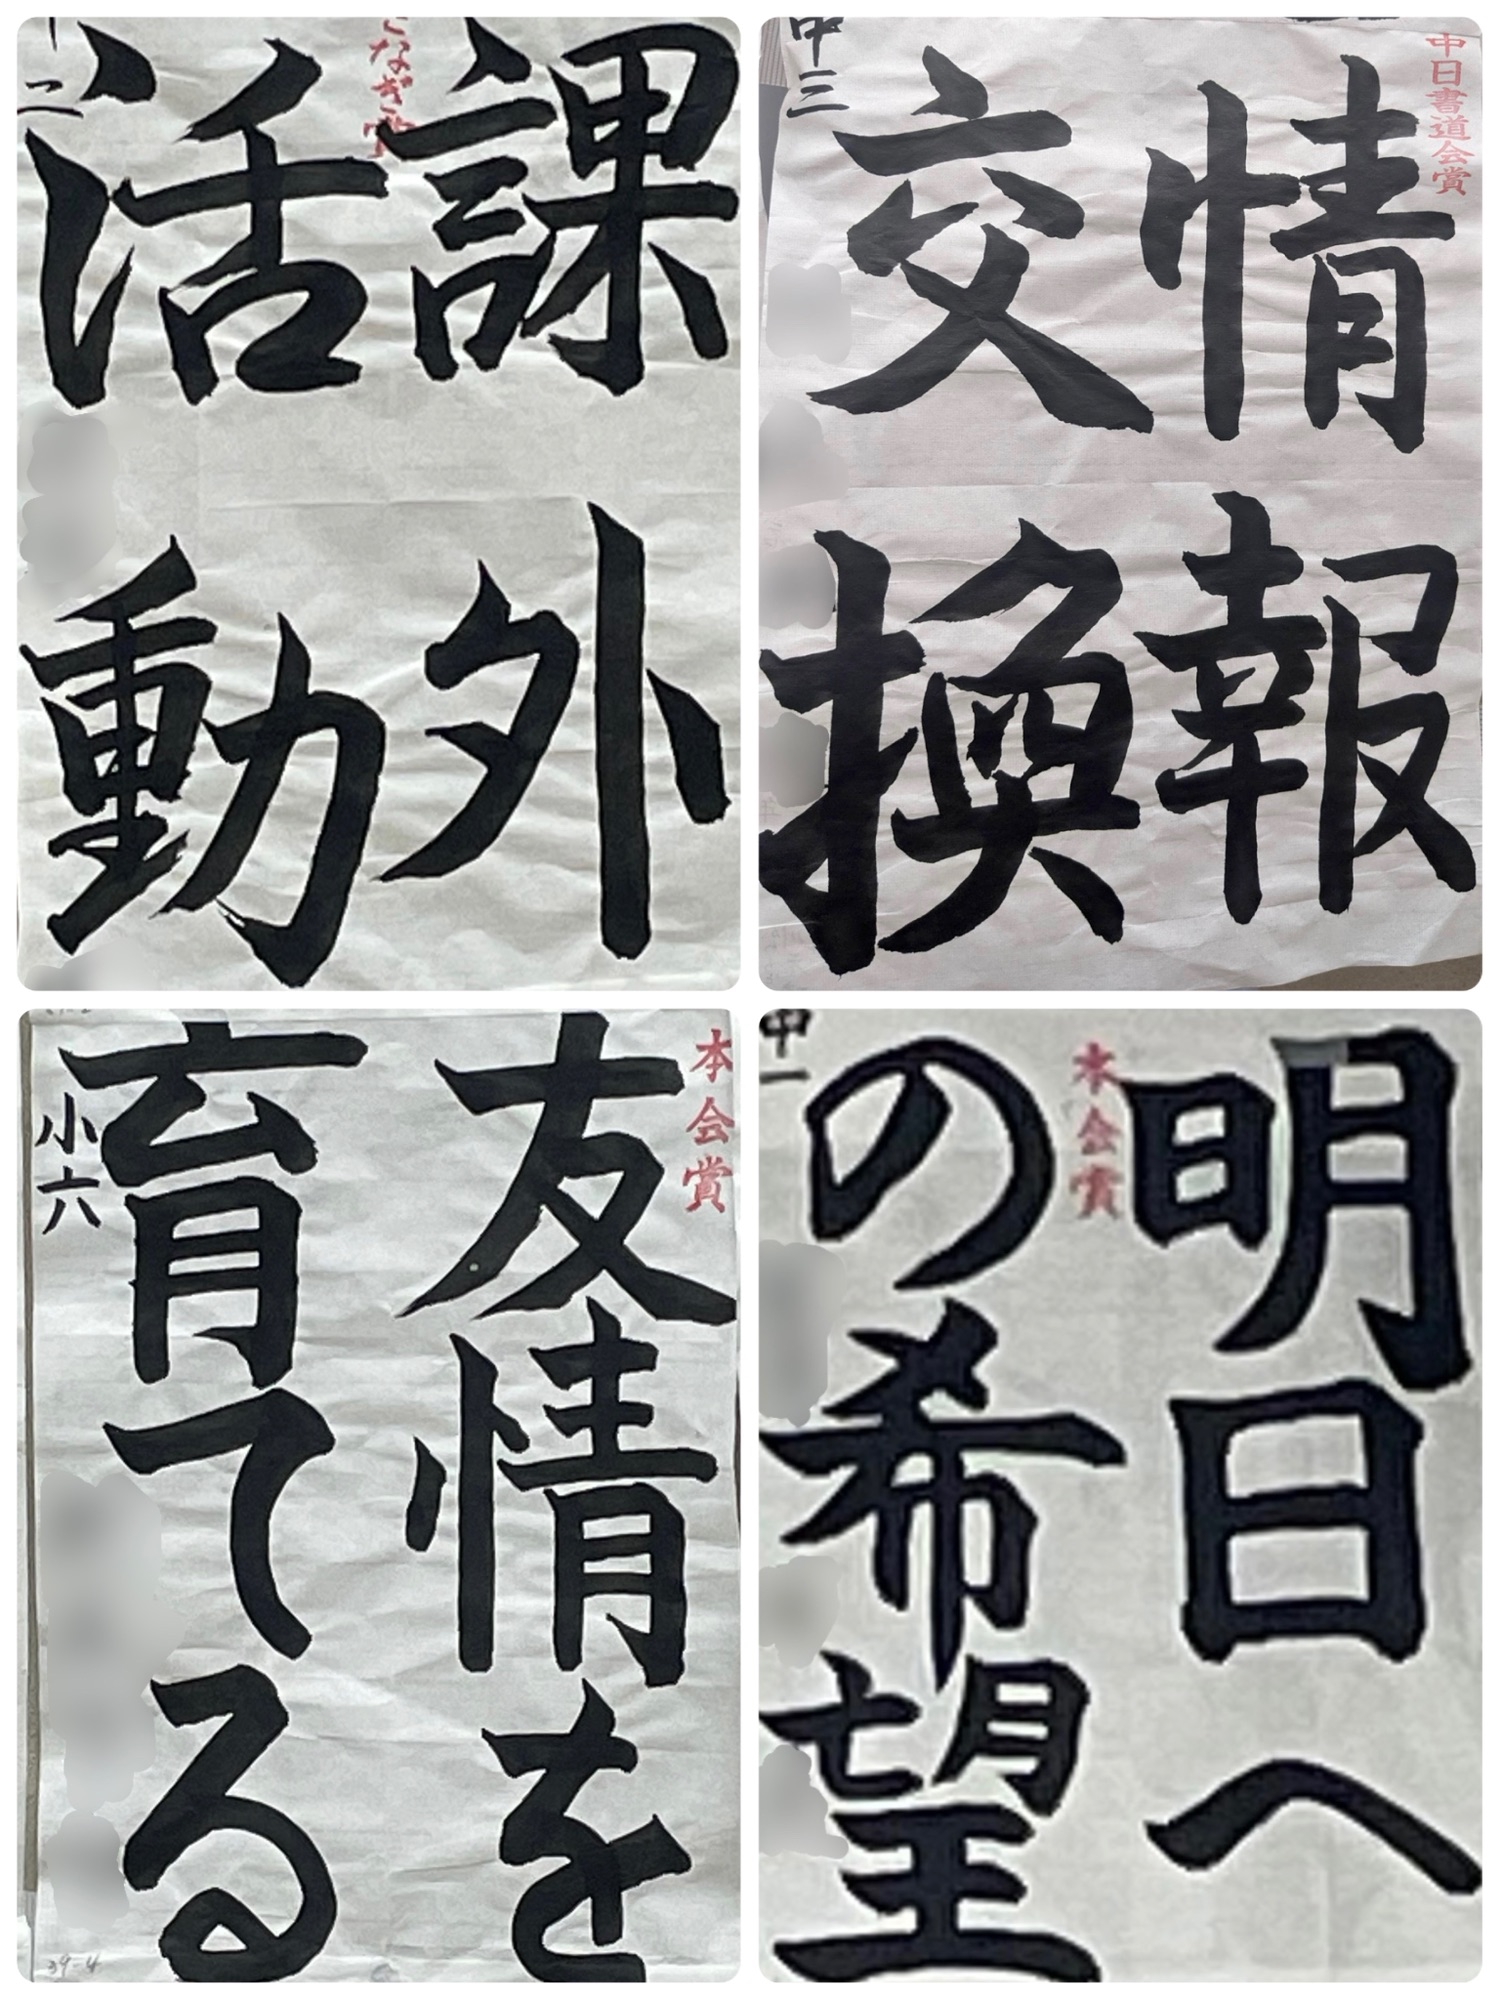 課外
活動
なぎ賞
二
情報
交換
中日書道会賞
中三
友情を
育てる
本会賞
小六
39-4
明日へ
の希望
本会賞
中一